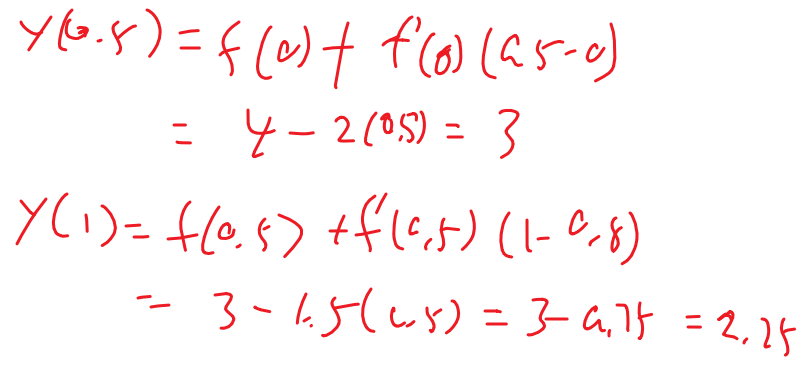 y(0.5) = f(0) + f'(0) (0.5-0)
= 4 - 2(0.5) = 3
y(1) = f(0.5) + f'(0.5) (1-0.5)
= 3 - 1.5(0.5) = 3 - 0.75 = 2.25